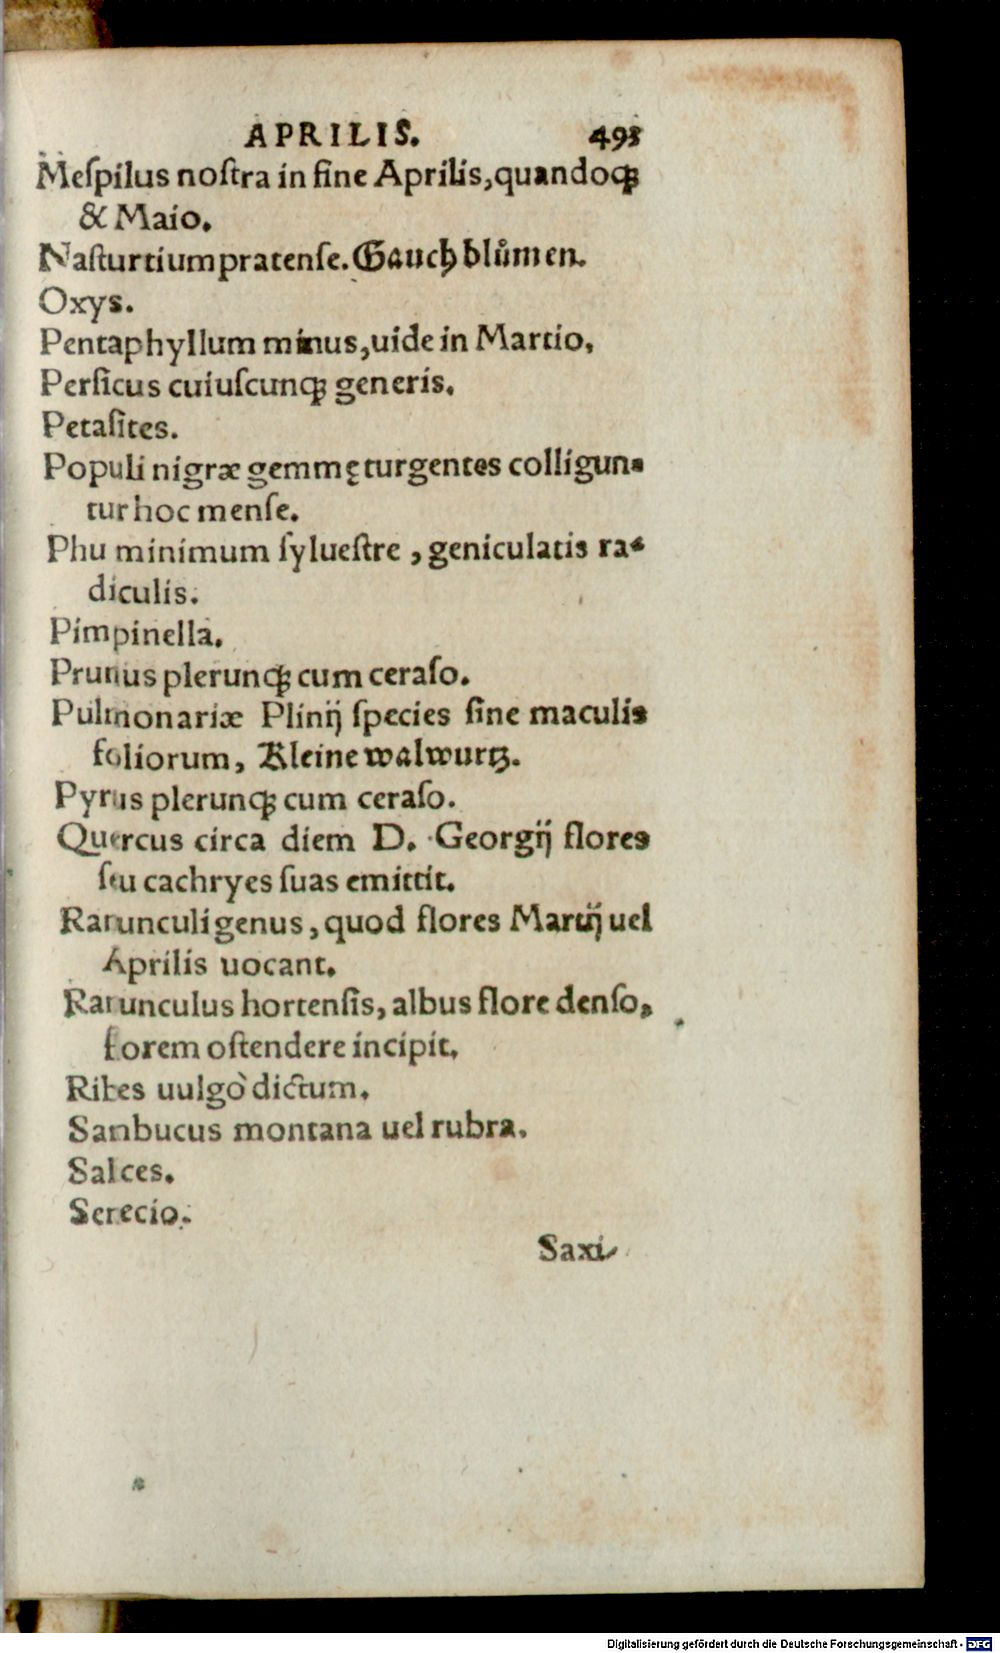 APRILIS. 493
Meſpilus noſtra in fine Aprilis, quandoq;
& Maio.
Naſturtium pratenſe. Gauch blůmen.
Oxys.
Pentaphyllum minus, uide in Martio,
Perſicus cuiuſcunq; generis.
Petaſites.
Populi nigræ gemmę turgentes colligun-
tur hoc menſe.
Phu minimum ſylueſtre, geniculatis ra-
diculis.
Pimpinella.
Prunus plerunq; cum ceraſo.
Pulmonariæ Plinij ſpecies ſine maculis
foliorum, Kleine walwurtz.
Pyrus plerunq; cum ceraſo.
Quercus circa diem D. Georgij flores
ſeu cachryes ſuas emittit.
Ranunculi genus, quod flores Martij uel
Aprilis uocant.
Ranunculus hortenſis, albus flore denſo,
florem oſtendere incipit.
Ribes uulgò dictum.
Sambucus montana uel rubra.
Salices.
Senecio.
Saxi-
Digitalisierung gefördert durch die Deutsche Forschungsgemeinschaft - DFG